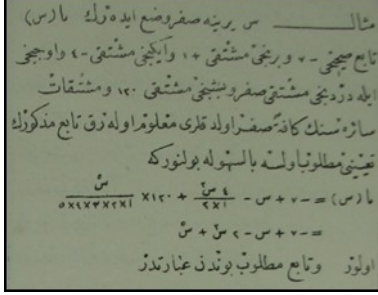 مثالـــــــ س يرينه صفر وضع ايده‌رك ما (س)
تابع صحيحى -٧ و برنجى مشتقى +١ و ايكنجى مشتقى -٤ و اوچنجى
ايله دردنجى مشتقى صفر و بشنجى مشتقى ١٢٠ و مشتقات
سائره سنك كافةً صفر اولدقلرى معلوم اوله‌رق تابع مذكورك
تعيينى مطلوب اولسه بالسهوله بولنوركه
ما (س) = -٧ + س - ٤س٢/١×٢ + ١٢٠× س٥/١×٢×٣×٤×٥
= -٧ + س - ٢س٢ + س٥
اولور و تابع مطلوب بوندن عبارتدر